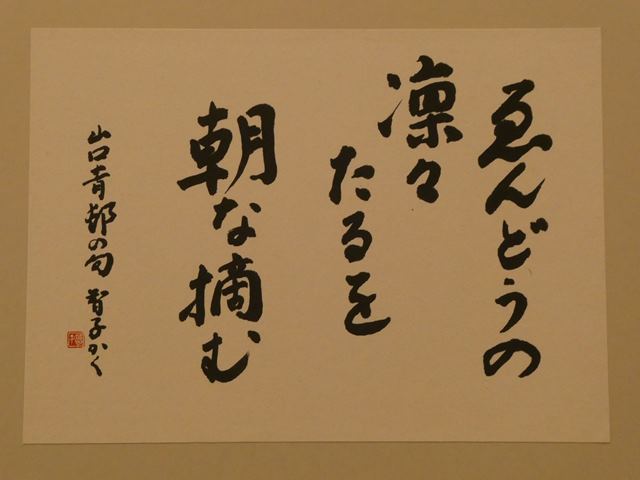 ゑんどうの
凛々
たるを
朝な摘む
山口青邨の句 智子かく